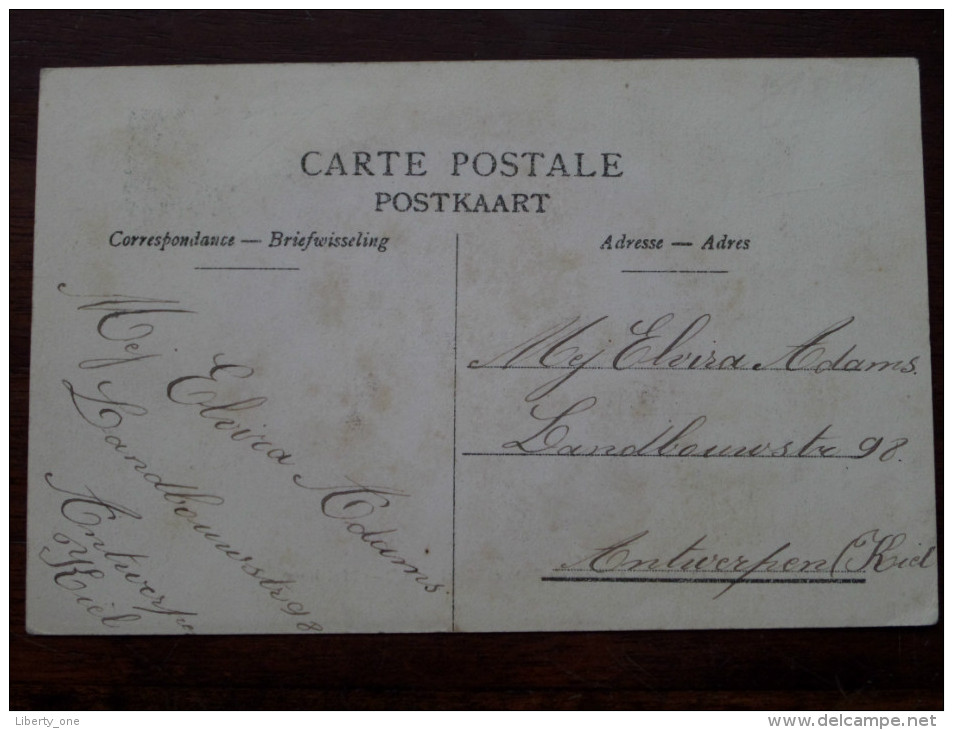 CARTE POSTALE
POSTKAART
Correspondance — Briefwisseling
Adresse — Adres
Mej Elvira Adams
Landbouwstr 98
Antwerpe
Kiel
Mej Elvira Adams.
Landbouwstr 98.
Antwerpen (Kiel
Liberty_one
www.delcampe.net